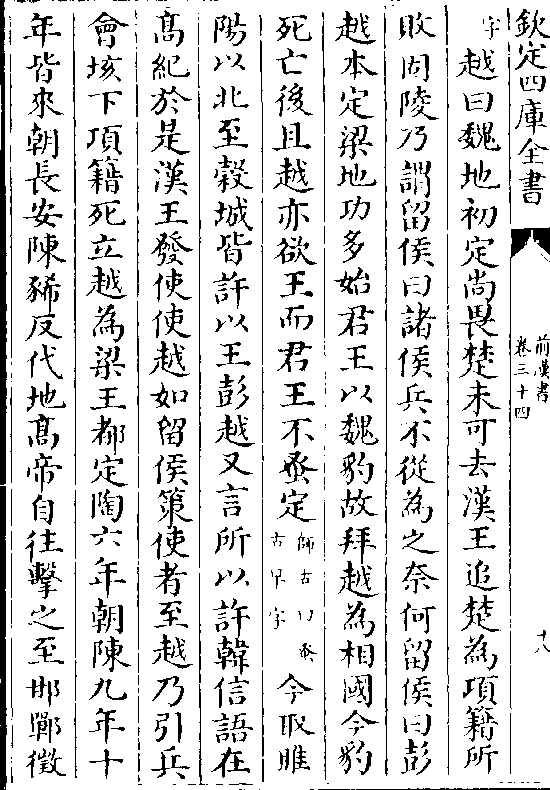 欽定四庫全書
前漢書
卷三十四
十八
字越曰魏地初定尚畏楚未可去漢王追楚為項籍所
敗固陵乃謂留侯曰諸侯兵不從為之奈何留侯曰彭
越本定梁地功多始君王以魏豹故拜越為相國今豹
死亡後且越亦欲王而君王不蚤定師古曰蚤古早字今取睢
陽以北至穀城皆許以王彭越又言所以許韓信語在
髙紀於是漢王發使使越如留侯策使者至越乃引兵
會垓下項籍死立越為梁王都定陶六年朝陳九年十
年皆來朝長安陳豨反代地髙帝自往擊之至邯鄲徵